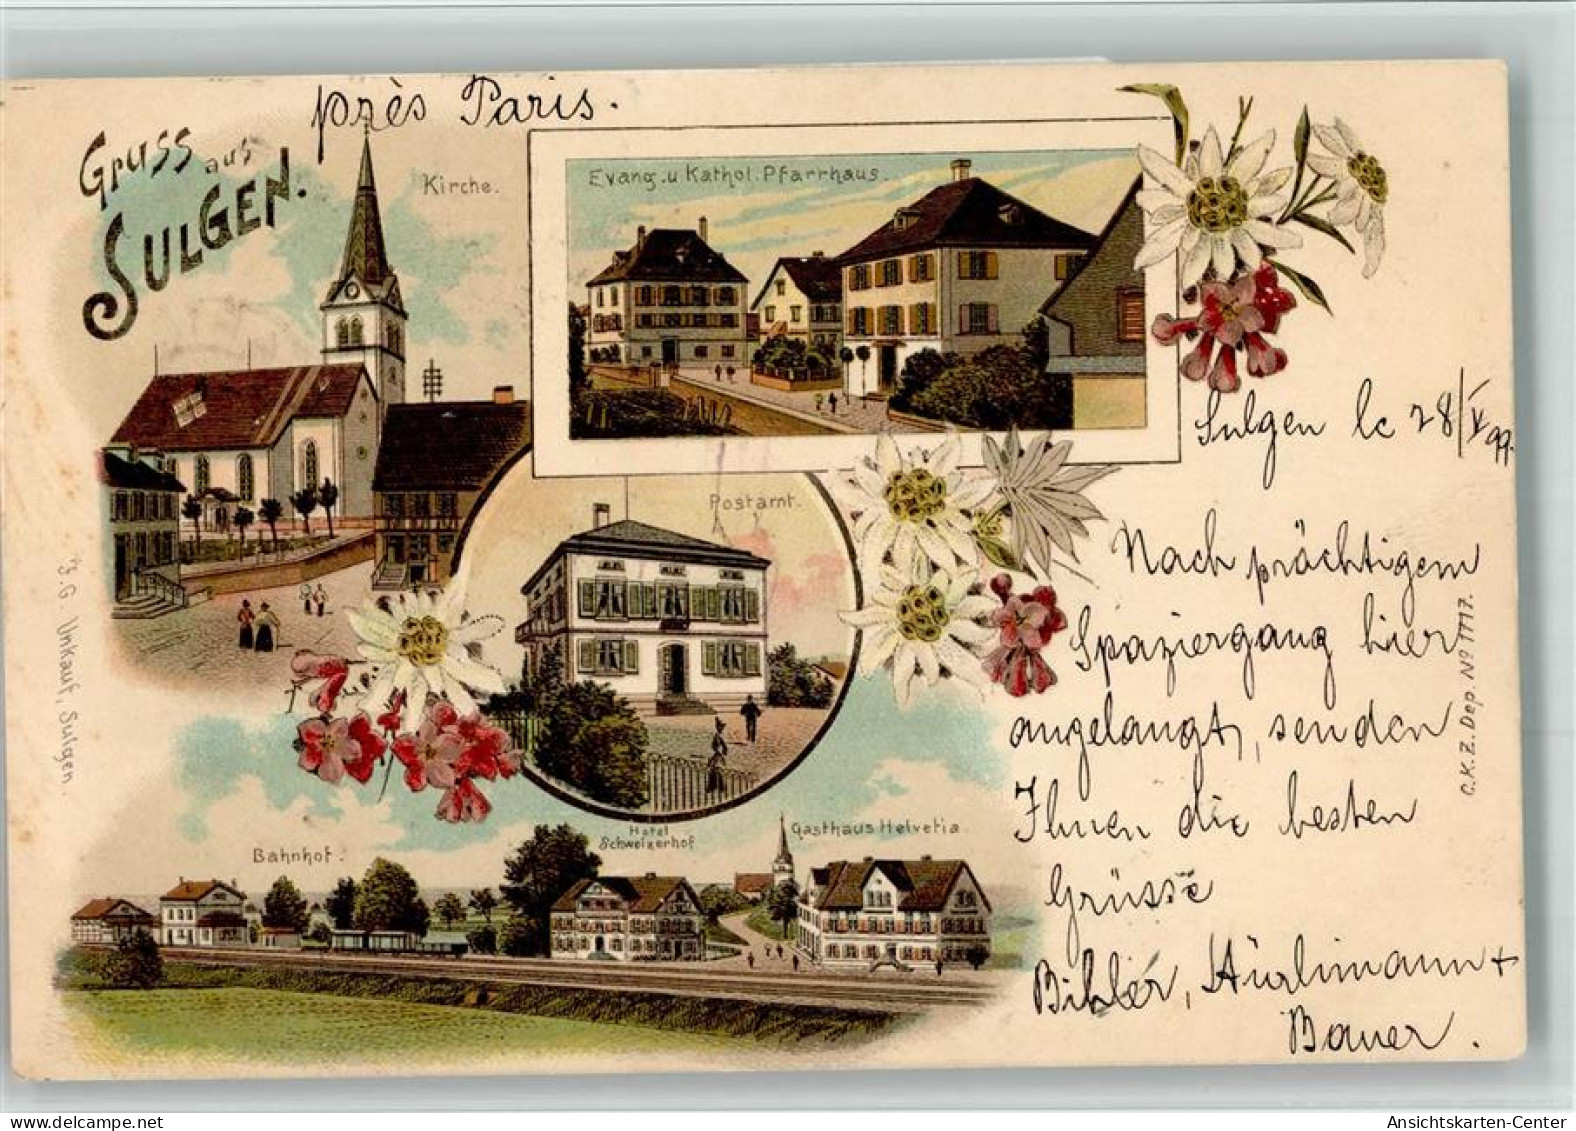 près Paris.
Gruss aus
SULGEN.
Kirche.
Evang. u Kathol. Pfarrhaus.
Postamt.
Bahnhof.
Hotel
Schweizerhof
Gasthaus Helvetia.
Sulgen le 28/V 99.
Nach prächtigem
Spaziergang hier
angelangt, senden
Ihnen die besten
Grüsse
Bihler, Hürlimann +
Bauer.
J.G. Unkauf, Sulgen.
C.K.Z. Dep. No 1117.
delcampe.net
Ansichtskarten-Center